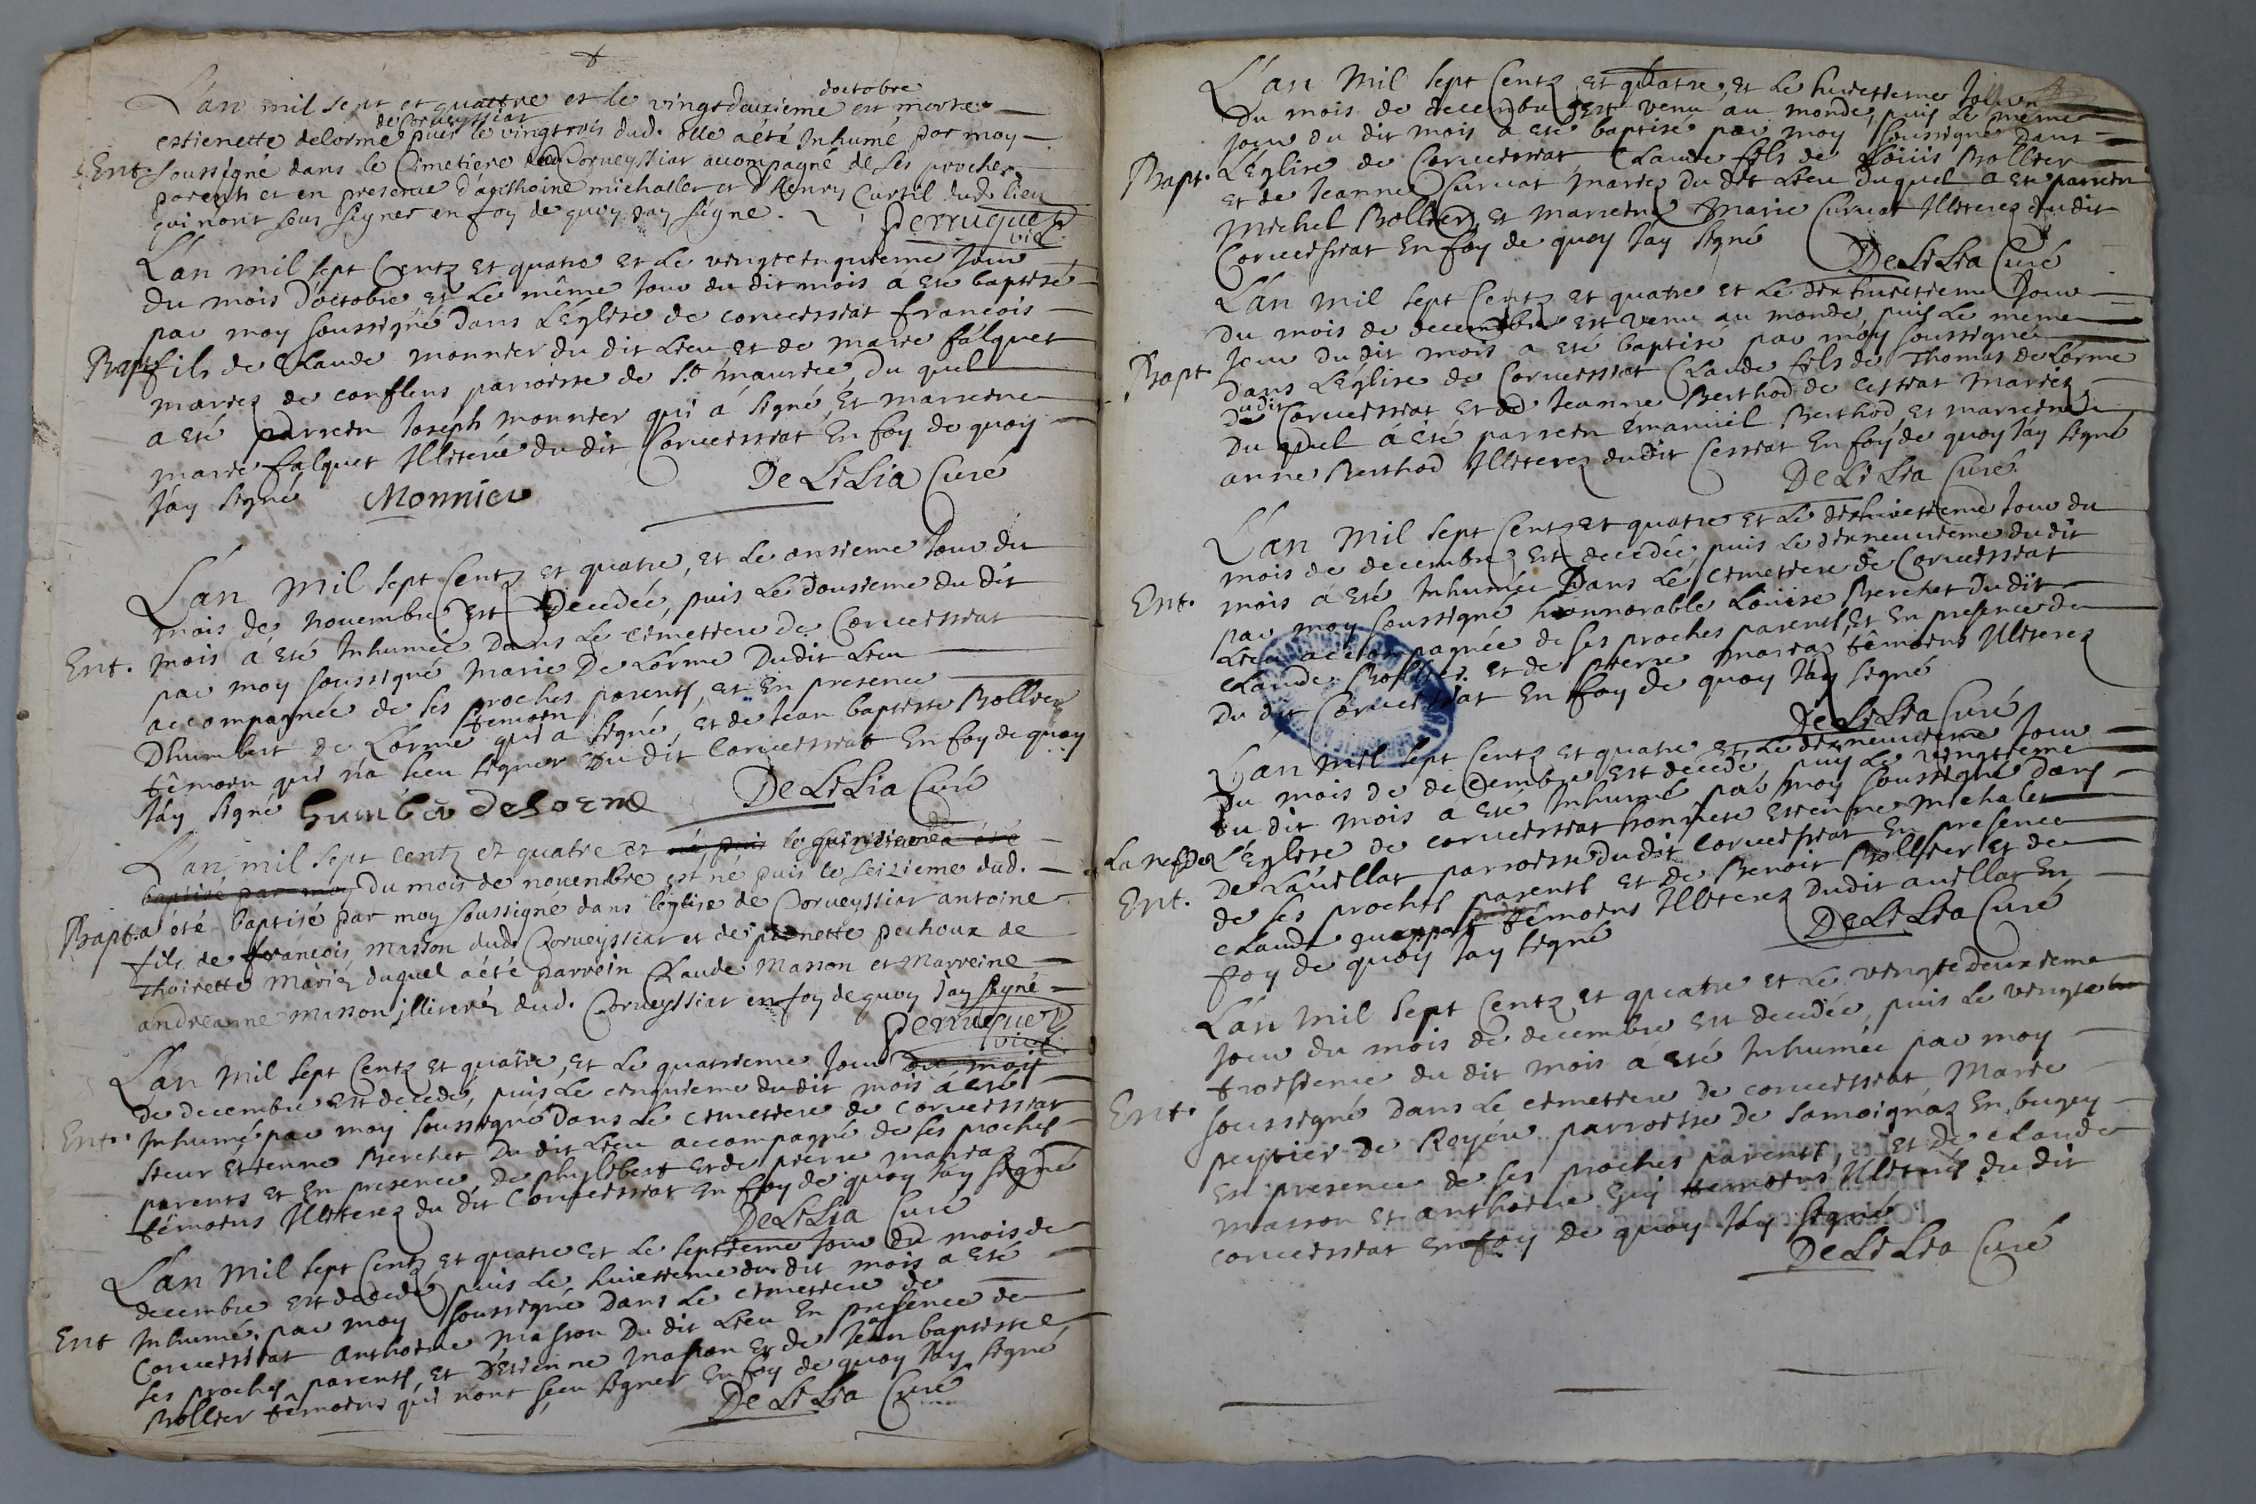 L'an mil sept et quattre et le vingtdeuxieme doctobre est morte
estienette delorme de Corveyssiat puis le vingtrois dud. elle a été Inhumé par moy
Ent. soussigné dans le Cimetiere dud Corveyssiat accompagné de ses proches
parents et en presence d'anthoine michallet et d'henry Curtil dud. lieu
qui n'ont sceu signer en foy de quoy jay signé.
Perruquet vic.
L'an mil sept Centz et quatre et Le vingtcinquieme Jour
du mois d'octobre et Le même Jour du dit mois a eté baptisé
par moy soussigné dans L'Eglise de corveissiat francois
Bapt fils de Claude monnier du dit Lieu et de marie falquet
mariez de conflens parroisse de St. maurice, du quel
a eté parrein Joseph monnier qui a signé, Et marreine
marie falquet Illiteré du dit Corveissiat En foy de quoy
Jay signé Monnier De LiLia Curé
L'an Mil sept Centz et quatre, et Le onsieme Jour du
mois de novembre est Decedée, puis Le dousieme du dit
Ent. mois a eté Inhumée Dans Le cimetiere de Corveissiat
par moy soussigné Marie De Lorme Dudit Lieu
accompagnée de ses proches parents, et En presence
Dhumbert de Lorme temoin qui a signé, et de Jean baptiste Bollier
têmoin qui n'a sceu signer Du dit Corveissiat En foy de quoy
Jay signé humber deLorme De LiLia Curé
L'an mil sept centz et quatre et né puis le quinzieme a été
baptisé par moy Du mois de novembre est né puis le seizieme dud.
Bapt. a été baptisé par moy soussigné dans l'église de Corveyssiat antoine
fils de francois Masson dud. Corveyssiat et de pernette pechoux de
thoirette Mariéz duquel a été parrein Claude Masson et Marreine
andreanne masson illiteréz dud. Corveyssiat en foy de quoy jay signé
Perruquet vic.
L'an Mil sept Centz et quatre, et Le quatrieme Jour du mois
de decembre est decedé, puis Le cinquieme du dit mois a eté
Ent. Inhumé par moy soussigné Dans Le cimetiere de Corveissiat
sieur Etienne Berchet Du dit Lieu accompagné de ses proches
parents et En presence de phylibert et de pierre mariaz
têmoins Illiterez du dit Corveissiat En foy de quoy Jay signé
De LiLia Curé
L'an Mil sept Centz et quatre et Le septieme Jour du mois de
decembre est decedé, puis Le huietieme du dit mois a eté
Ent Inhumé par moy soussigné Dans Le cimetiere de
Corveissiat anthoine Masson Du dit Lieu En presence de
ses proches parents, et D'Etienne Masson et de Jean baptiste
Bollier têmoins qui n'ont sceu signer En foy de quoy Jay signé
De LiLia Curé
L'an Mil sept Centz et quatre, et Le huietieme Jour
du mois de decembre est venu au monde, puis Le même
Jour du dit mois a eté baptisé par moy soussigné Dans
Bapt. L'Eglise de Corveissiat Claude fils de Loüis Bollier
et de Jeanne Curvat Mariez Du dit Lieu duquel a eté parrein
Michel Bollier, et Marreine Marie Curvat Illiterez dudit
Corveissiat En foy de quoy Jay signé
De LiLia Curé
L'an Mil sept Centz et quatre et Le dixhuietieme Jour
Du mois de decembre est venu au monde, puis Le même
Bapt Jour Du dit mois a eté baptisé par moy soussigné
Dans L'église de Corveissiat Claude fils de Thomas de Lorme
Dudit Corveissiat et de Jeanne Berthod de Cessiat Mariez
Du quel a été parrein Emanuel Berthod et marreine
anne Berthod Illiterez dudit Cessiat En foy de quoy Jay signé
De LiLia Curé
L'an Mil sept Centz et quatre et Le dixhuietieme Jour du
mois de decembre est decedée, puis Le dixneuvieme du dit
Ent. mois a eté Inhumée Dans Le cimetiere de Corveissiat
par moy soussigné honnorable Loüise Berchet Du dit
Lieu accompagnée de ses proches parents, et En presence de
Claude Bollier et de Pierre Mariaz têmoins Illiterez
Du dit Corveissiat En foy de quoy Jay signé
De LiLia Curé
L'an mil sept Centz et quatre et Le dixneuvieme Jour
Du mois de decembre est decedé, puis Le vingtieme
du dit mois a eté Inhumé par moy soussigné dans
La nef de L'Eglise de Corveissiat Etienne Michalet
Ent. De Lavillat parroisse dudit Corveissiat En presence
de ses proches parents et de Benoit Bollier et de
Claude têmoins Illiterez Dudit avillat En
foy de quoy Jay signé De LiLia Curé
L'an Mil sept Centz et quatre et Le vingtedeuxieme
Jour du mois de decembre est decedée, puis Le vingte
troisieme du dit mois a eté Inhumée par moy
Ent. soussigné Dans Le cimetiere de corveissiat, Marie
peytier de Royéres parroisse de Samoignaz En bugey
En presence de ses proches parents, et de Claude
Masson et anthoine Guy temoins Illiterés du dit
corveissiat En foy de quoy Jay signé
De LiLia Curé